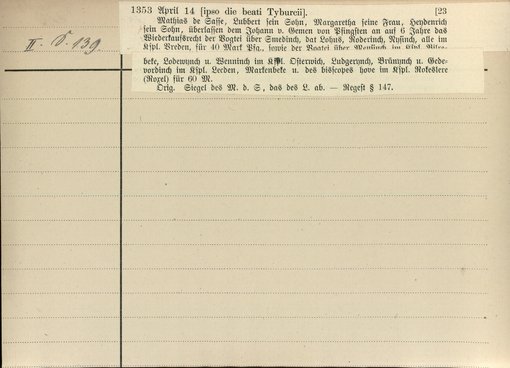 1353 April 14 [ipso die beati Tyburcii]. [23
Mathias de Sasse, Lubbert sein Sohn, Margaretha seine Frau, Heydenrich
sein Sohn, überlassen dem Johann v. Gemen von Pfingsten an auf 6 Jahre das
Wiederkaufsrecht der Vogtei über Smedinch, dat Lohus, Roderinch, Nysinch, alle im
Kspl. Vreden, für 40 Mark Pfg., sowie der Vogtei über im Kspl.
II. 139
beke, Lodewynch u. Wenninch im Kspl. Osterwich, Ludgerynch, Brünynch u. Gede-
vordinch im Kspl. Leeden, Markenbeke u. des bisscopes hove im Kspl. Rokeslere
(Roxel) für 60 M.
Orig. Siegel des M. d. S, das des L. ab. — Regest § 147.